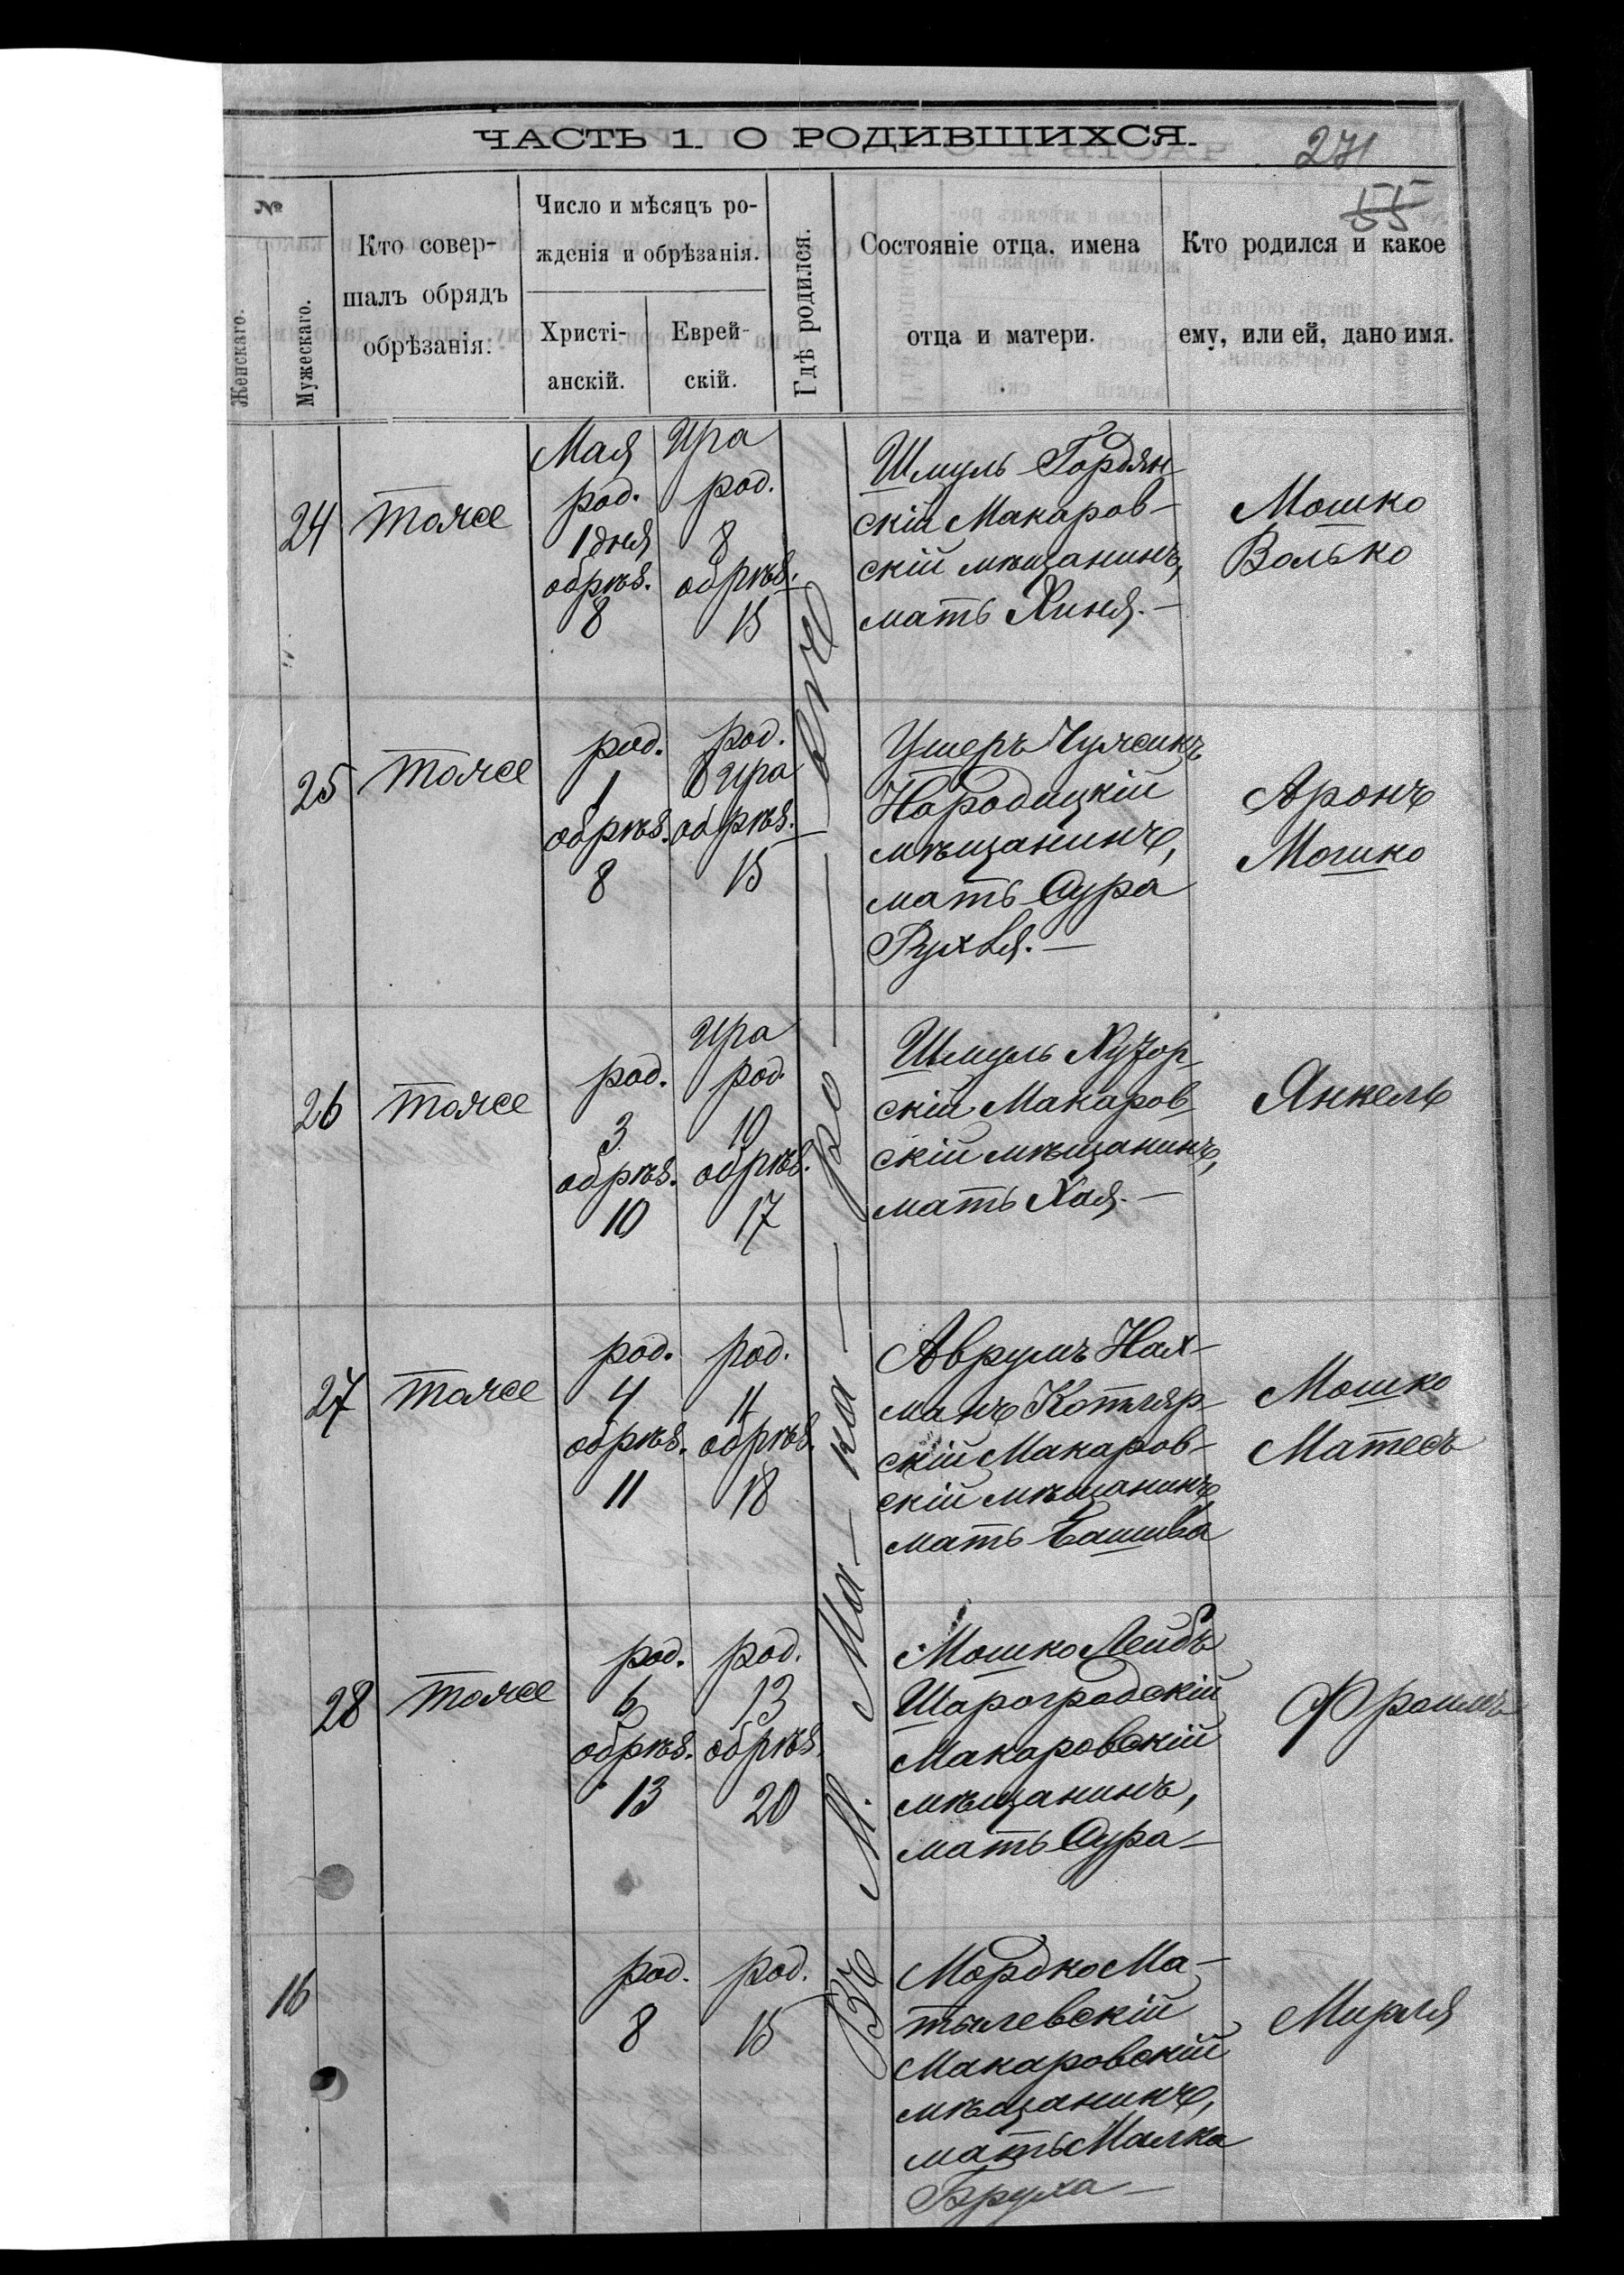 ЧАСТЬ 1. О РОДИВШИХСЯ.
271
55
№
Женскаго.
Мужескаго.
Кто совер-
шалъ обрядъ
обрѣзанія:
Число и мѣсяцъ ро-
жденія и обрѣзанія.
Христі-
анскій.
Еврей-
скій.
Гдѣ родился.
Состояніе отца, имена
отца и матери.
Кто родился и какое
ему, или ей, дано имя.
Въ М. Ма-ка-ро-вѣ
24
тоже
Мая
род.
1 дня
обрѣз.
8
Ира
род.
8
обрѣз.
15
Шмуль Гордян
скій Макаров-
скій мѣщанинъ,
мать Хиня.-
Мошко
Волько
25
тоже
род.
1
обрѣз.
8
род.
8 Ира
обрѣз.
15
Ушеръ
Народицкій
мѣщанинъ,
мать Сура
Рухля.-
Аронъ
Мошко
26
тоже
род.
3
обрѣз.
10
Ира
род.
10
обрѣз.
17
Шмуль Хутор
скій Макаров
скій мѣщанинъ,
мать Хая.-
Янкель
27
тоже
род.
4
обрѣз.
11
род.
11
обрѣз.
18
Аврумъ Нах-
манъ Котляр
скій Макаров-
скій мѣщанинъ
мать Башива
Мошко
Матесъ
28
тоже
род.
6
обрѣз.
13
род.
13
обрѣз.
20
Мошко Лейбъ
Шарогродскій
Макаровскій
мѣщанинъ,
мать Сура-
Фроимъ
16
род.
8
род.
15
Мордко Ма-
тылевскій
Макаровскій
мѣщанинъ,
мать Малка
Бруха-
Мирля